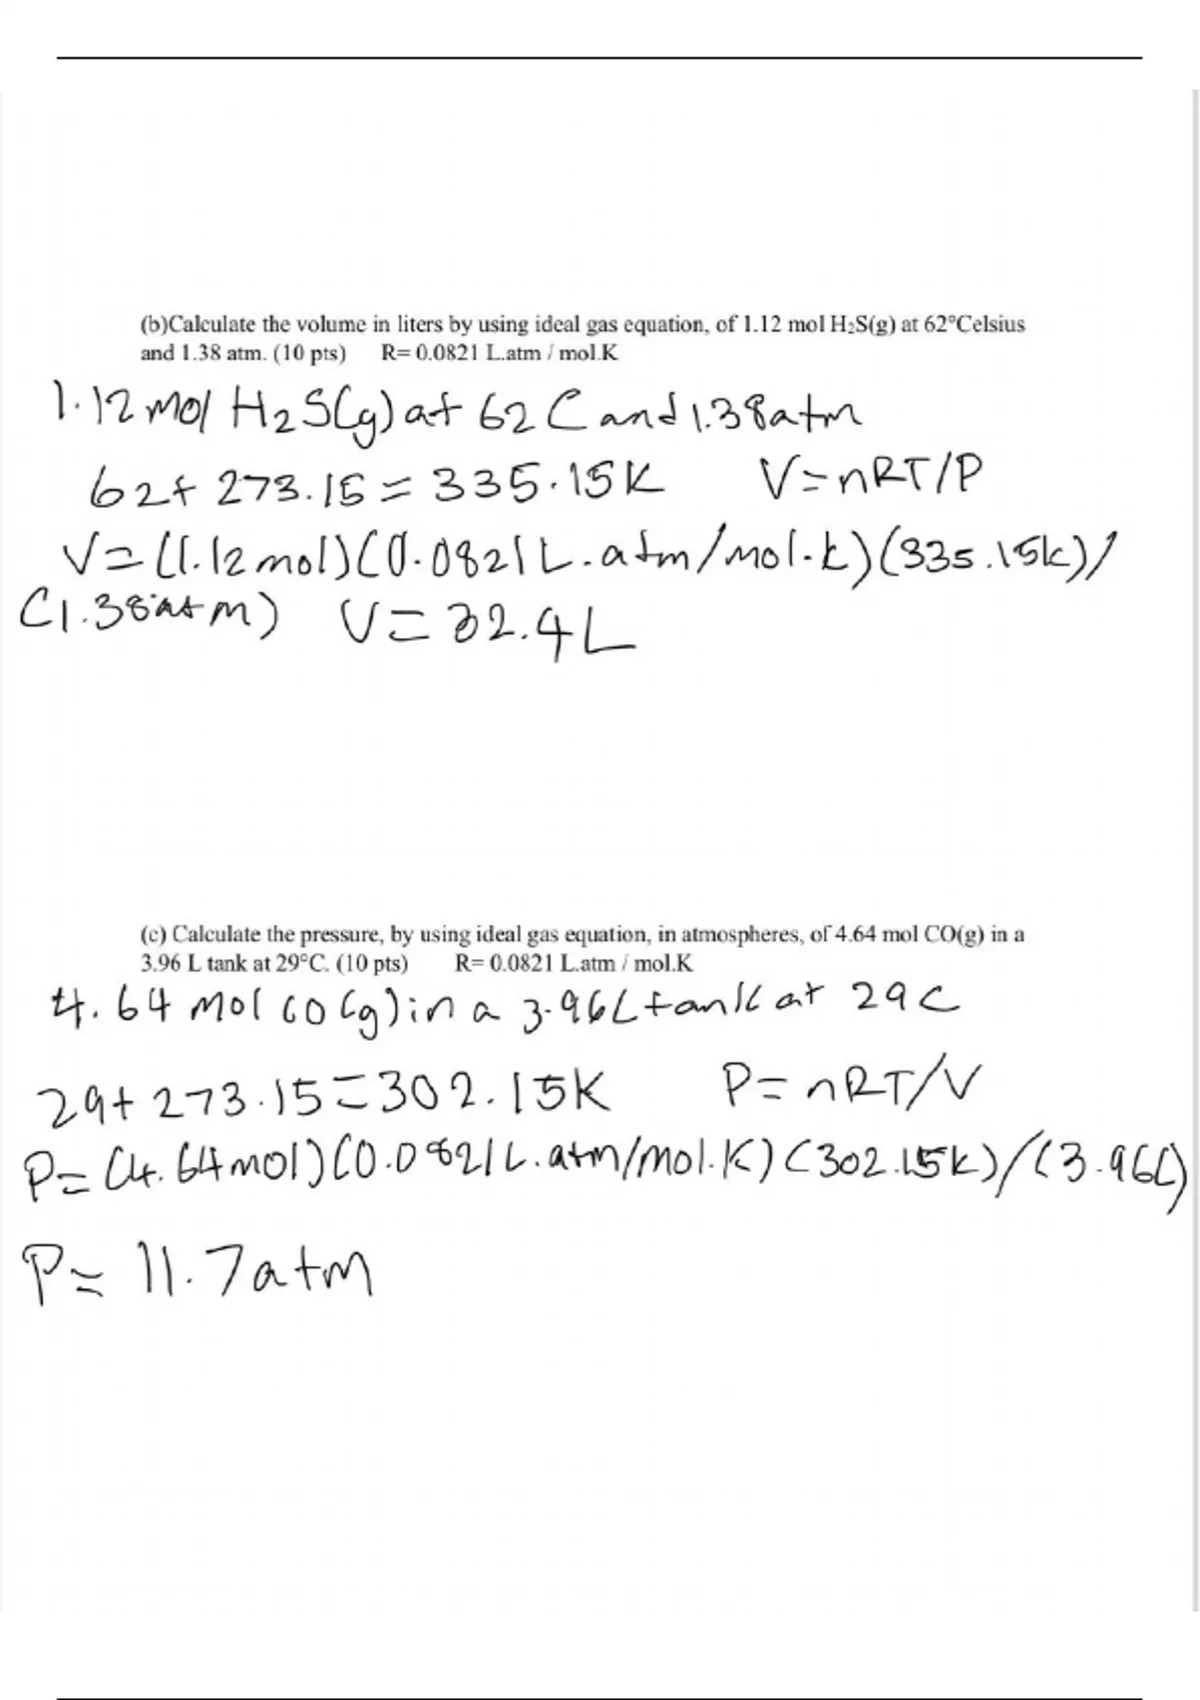 (b)Calculate the volume in liters by using ideal gas equation, of 1.12 mol H₂S(g) at 62°Celsius
and 1.38 atm. (10 pts) R= 0.0821 L.atm / mol.K
1.12 mol H₂S(g) at 62 C and 1.38 atm
62 + 273.15 = 335.15K V=nRT/P
V=(1.12mol)(0.0821 L.atm/mol.k)(335.15k)/
(1.38atm) V=32.4L
(c) Calculate the pressure, by using ideal gas equation, in atmospheres, of 4.64 mol CO(g) in a
3.96 L tank at 29°C. (10 pts) R= 0.0821 L.atm / mol.K
4.64 mol CO(g) in a 3.96L tank at 29C
29+273.15=302.15K P=nRT/V
P=(4.64mol)(0.0821L.atm/mol.K)(302.15k)/(3.96L)
P=11.7atm